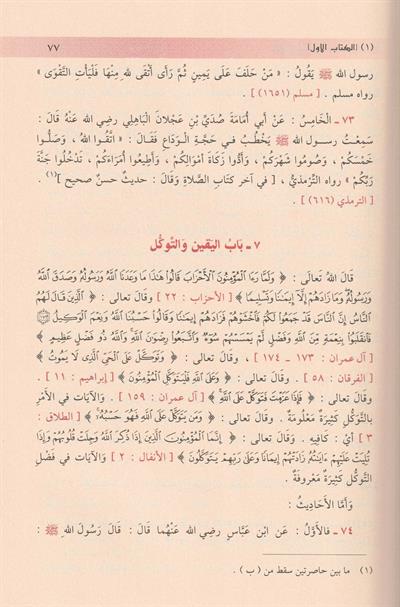 (١) (الكتاب الأول) ٧٧
رسول الله ﷺ يَقُولُ : « مَنْ حَلَفَ عَلَى يَمِينٍ ثُمَّ رَأَى أَتْقَى للهِ مِنْهَا فَلْيَأْتِ التَّقْوَى »
رواه مسلم . [ مسلم (١٦٥١) ] .
٧٣ ـ الْخَامِسُ : عَنْ أَبِي أُمَامَةَ صُدَيِّ بْنِ عَجْلَانَ الْبَاهِلِي رضي الله عَنْهُ قَالَ :
سَمِعْتُ رسول الله ﷺ يَخْطُبُ فِي حَجَّةِ الْوَدَاعِ فَقَالَ : « اتَّقُوا اللهَ ، وَصَلُّوا
خَمْسَكُمْ ، وَصُومُوا شَهْرَكُمْ ، وَأَدُّوا زَكَاةَ أَمْوَالِكُمْ ، وَأَطِيعُوا أُمَرَاءَكُمْ ، تَدْخُلُوا جَنَّةَ
رَبِّكُمْ » رواه التِّرْمِذِيُّ ، [ في آخر كِتَابِ الصَّلَاةِ وَقَالَ : حديثٌ حسنٌ صحيح ](١) .
[ الترمذي (٦١٦) ] .
٧ ـ بَابُ اليَقين وَالتَّوكُّل
قَالَ اللهُ تَعَالَى : ﴿ وَلَمَّا رَءَا الْمُؤْمِنُونَ الْأَحْزَابَ قَالُوا هَٰذَا مَا وَعَدَنَا اللَّهُ وَرَسُولُهُ وَصَدَقَ اللَّهُ
وَرَسُولُهُ وَمَا زَادَهُمْ إِلَّا إِيمَانًا وَتَسْلِيمًا ﴾ [ الأحزاب : ٢٢ ] وقال تعالى : ﴿ الَّذِينَ قَالَ لَهُمُ
النَّاسُ إِنَّ النَّاسَ قَدْ جَمَعُوا لَكُمْ فَاخْشَوْهُمْ فَزَادَهُمْ إِيمَانًا وَقَالُوا حَسْبُنَا اللَّهُ وَنِعْمَ الْوَكِيلُ ١٧٣
فَانقَلَبُوا بِنِعْمَةٍ مِّنَ اللَّهِ وَفَضْلٍ لَّمْ يَمْسَسْهُمْ سُوءٌ وَاتَّبَعُوا رِضْوَانَ اللَّهِ وَاللَّهُ ذُو فَضْلٍ عَظِيمٍ ﴾
[ آل عمران : ١٧٣ ـ ١٧٤ ] ، وقال تعالى : ﴿ وَتَوَكَّلْ عَلَى الْحَيِّ الَّذِي لَا يَمُوتُ ﴾
[ الفرقان : ٥٨ ] . وقال تعالى : ﴿ وَعَلَى اللَّهِ فَلْيَتَوَكَّلِ الْمُؤْمِنُونَ ﴾ [ إبراهيم : ١١ ] .
وقال تعالى : ﴿ فَإِذَا عَزَمْتَ فَتَوَكَّلْ عَلَى اللَّهِ ﴾ [ آل عمران : ١٥٩ ] . والآيات في الأَمْرِ
بِالتَّوَكُّلِ كَثِيرَةٌ مَعْلُومَةٌ . وقال تعالى : ﴿ وَمَن يَتَوَكَّلْ عَلَى اللَّهِ فَهُوَ حَسْبُهُ ﴾ [ الطلاق :
٣ ] أَيْ : كافِيهِ . وقال تعالى : ﴿ إِنَّمَا الْمُؤْمِنُونَ الَّذِينَ إِذَا ذُكِرَ اللَّهُ وَجِلَتْ قُلُوبُهُمْ وَإِذَا
تُلِيَتْ عَلَيْهِمْ ءَايَاتُهُ زَادَتْهُمْ إِيمَانًا وَعَلَىٰ رَبِّهِمْ يَتَوَكَّلُونَ ﴾ [ الأنفال : ٢ ] والآيات في فَضْلِ
التَّوكُّلِ كَثِيرَةٌ مَعْرُوفَةٌ .
وَأَمَّا الأَحَادِيثُ :
٧٤ ـ فَالأَوَّلُ : عَن ابْنِ عَبَّاسٍ رضي الله عَنْهُمَا قَالَ : قَالَ رَسُولَ اللهِ ﷺ :
(١) ما بين حاصرتين سقط من ( ب ) .